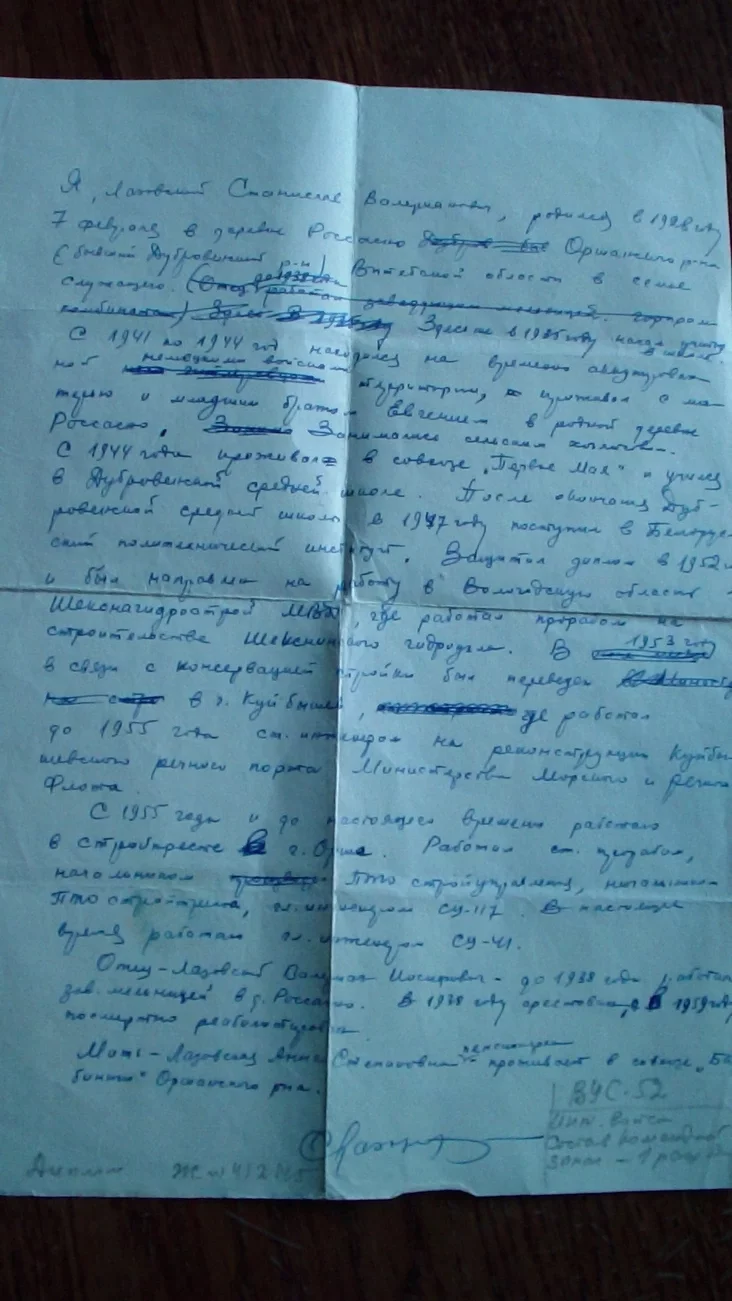 Я, Лазовский Станислав Валерианович, родился в 1928 году
7 февраля в деревне Россасно Оршанского р-на
(бывший Дубровенский р-н) Витебской области в семье
служащего. (Отец до 1938 года работал заведующим мельницей
комбината) Здесь в 1935 году начал учебу в школе.
С 1941 по 1944 год находился на временно оккупирован-
ной немецкими войсками территории, проживал с ма-
терью и младшим братом Евгением в родной деревне
Россасно. Занимались сельским хозяйством.
С 1944 года проживал в совхозе "Первое Мая" и учился
в Дубровенской средней школе. После окончания Дуб-
ровенской средней школы в 1947 году поступил в Белорус
ский политехнический институт. Защитил диплом в 1952
и был направлен на работу в Вологодскую область
Шекснагидрострой МВД, где работал прорабом на
строительстве Шекснинского гидроузла. В 1953 году
в связи с консервацией стройки был переведен
в г. Куйбышев, где работал
до 1955 года ст. инженером на реконструкции Куйбы-
шевского речного порта Министерства Морского и речного
Флота.
С 1955 года и до настоящего времени работаю
в стройтресте в г. Орше. Работал ст. прорабом,
начальником ПТО стройуправления, начальником
ПТО стройтреста, гл. инженером СУ-117. В настоящее
время работаю гл. инженером СУ-41.
Отец - Лазовский Валериан Иосифович - до 1938 года работал
зав. мельницей в д. Россасно. В 1938 году арестован, в 1959 году
посмертно реабилитирован
Мать - Лазовская Анна Степановна - пенсионерка проживает в совхозе "Ба
биничи" Оршанского р-на.
ВУС-52
Инж. войск
Состав командный
Диплом Ж №